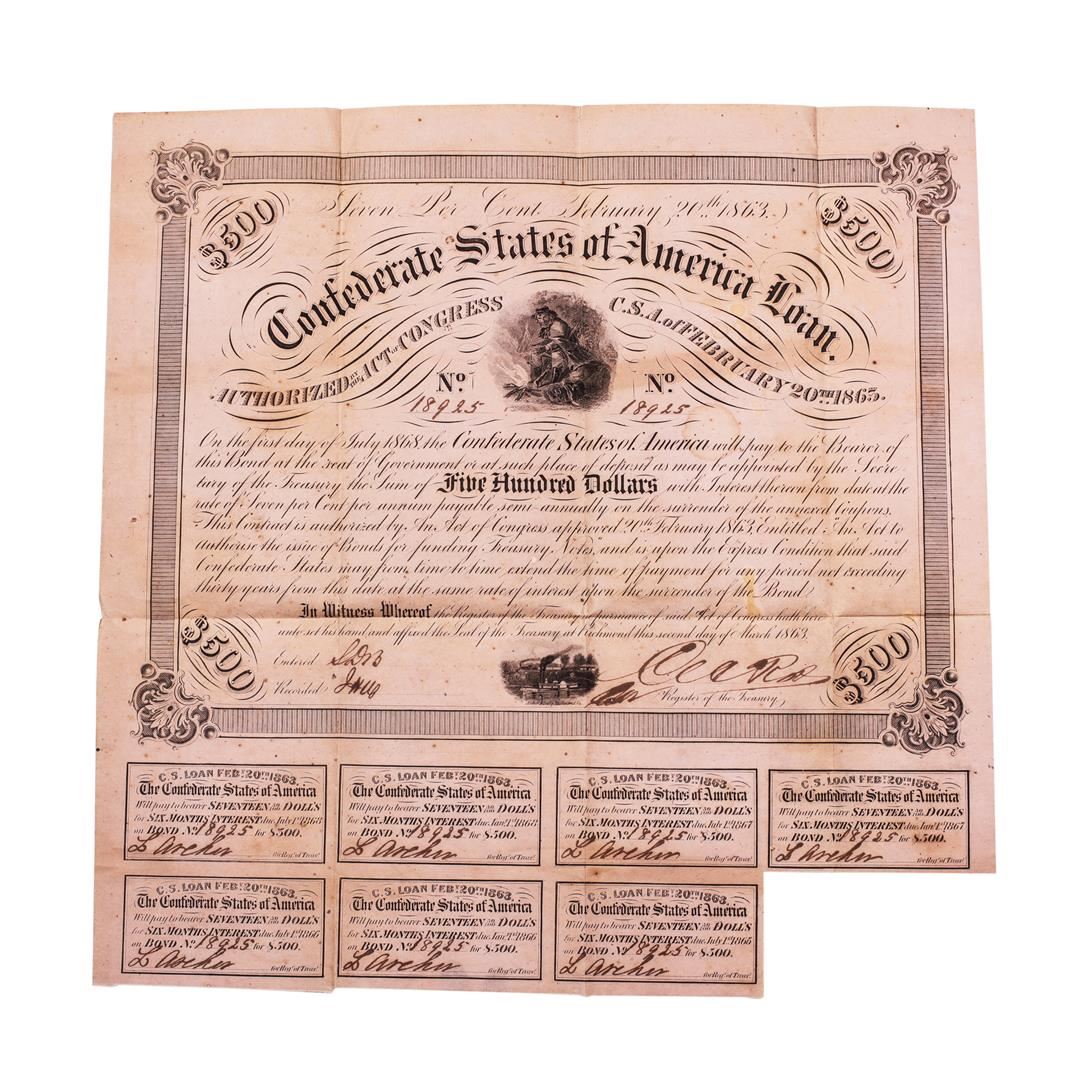 $500
Seven Per Cent February 20th 1863.
$500
Confederate States of America Loan.
AUTHORIZED BY THE ACT of CONGRESS
C.S.A. of FEBRUARY 20TH 1863.
No. 18925
No. 18925
On the first day of July 1868 the Confederate States of America will pay to the Bearer of
this Bond at the seat of Government or at such place of deposit as may be appointed by the Secre
tary of the Treasury the Sum of Five Hundred Dollars with Interest thereon from date at the
rate of Seven per Cent per annum payable semi-annually on the surrender of the annexed Coupons.
This Contract is authorized by An Act of Congress approved 20th February 1863. Entitled "An Act to
authorise the issue of Bonds for funding Treasury Notes, and is upon the Express Condition that said
Confederate States may from time to time extend the time of payment for any period not exceeding
thirty years from this date at the same rate of interest upon the surrender of the Bond.
In Witness Whereof the Register of the Treasury in pursuance of said Act of Congress hath here
unto set his hand and affixed the Seal of the Treasury at Richmond this second day of March 1863.
$500
Entered
Recorded
Register of the Treasury
$500
C.S. LOAN FEB: 20TH 1863.
The Confederate States of America
Will pay to bearer SEVENTEEN 50/100 DOLL'S
for SIX MONTHS INTEREST due July 1st 1868
on BOND No. 18925 for $500.
L Archer for Reg. of Treas.
C.S. LOAN FEB: 20TH 1863.
The Confederate States of America
Will pay to bearer SEVENTEEN 50/100 DOLL'S
for SIX MONTHS INTEREST due Jany 1st 1868
on BOND No. 18925 for $500.
L Archer for Reg. of Treas.
C.S. LOAN FEB: 20TH 1863.
The Confederate States of America
Will pay to bearer SEVENTEEN 50/100 DOLL'S
for SIX MONTHS INTEREST due July 1st 1867
on BOND No. 18925 for $500.
L Archer for Reg. of Treas.
C.S. LOAN FEB: 20TH 1863.
The Confederate States of America
Will pay to bearer SEVENTEEN 50/100 DOLL'S
for SIX MONTHS INTEREST due Jany 1st 1867
on BOND No. 18925 for $500.
L Archer for Reg. of Treas.
C.S. LOAN FEB: 20TH 1863.
The Confederate States of America
Will pay to bearer SEVENTEEN 50/100 DOLL'S
for SIX MONTHS INTEREST due July 1st 1866
on BOND No. 18925 for $500.
L Archer for Reg. of Treas.
C.S. LOAN FEB: 20TH 1863.
The Confederate States of America
Will pay to bearer SEVENTEEN 50/100 DOLL'S
for SIX MONTHS INTEREST due Jany 1st 1866
on BOND No. 18925 for $500.
L Archer for Reg. of Treas.
C.S. LOAN FEB: 20TH 1863.
The Confederate States of America
Will pay to bearer SEVENTEEN 50/100 DOLL'S
for SIX MONTHS INTEREST due July 1st 1865
on BOND No. 18925 for $500.
L Archer for Reg. of Treas.